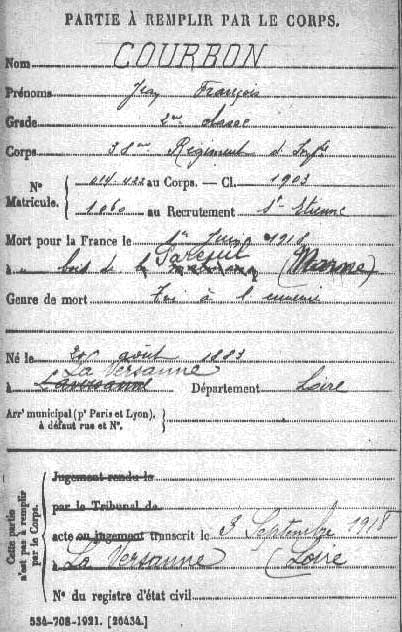 PARTIE À REMPLIR PAR LE CORPS.
Nom COURBON
Prénoms Jean François
Grade 2me classe
Corps 38me Régiment d'Inftie
N° Matricule. 014.422 au Corps. — Cl. 1903
1060 au Recrutement St Etienne
Mort pour la France le 1er Juin 1918
à bois de (Marne)
Genre de mort Tué à l'ennemi
Né le août 1883
La Versanne
à Laversanne Département Loire
Arrt municipal (pr Paris et Lyon),
à défaut rue et N°.
Cette partie n'est pas à remplir par le Corps.
Jugement rendu le
par le Tribunal de
acte ou jugement transcrit le 3 Septembre 1918
à La Versanne (Loire)
N° du registre d'état civil
534-708-1921. [26434.]